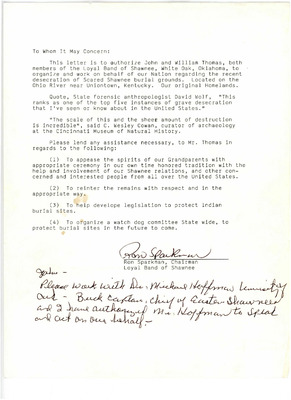 To Whom It May Concern:
This letter is to authorize John and William Thomas, both
members of the Loyal Band of Shawnee, White Oak, Oklahoma, to
organize and work on behalf of our Nation regarding the recent
desecration of Scared Shawnee burial grounds. Located on the
Ohio River near Uniontown, Kentucky. Our original Homelands.
Quote, State forensic anthropologist David Wolf, "This
ranks as one of the top five instances of grave desecration
that I've seen or know about in the United States."
"The scale of this and the sheer amount of destruction
is incredible", said C. Wesley Cowan, curator of archaeology
at the Cincinnati Museum of Natural History.
Please lend any assistance necessary, to Mr. Thomas in
regards to the Following:
(1) To appease the spirits of our Grandparents with
appropriate ceremony in our own time honored tradition with the
help and involvement of our Shawnee relations, and other con-
cerned and interested people from all over the United States.
(2) To reinter the remains with respect and in the
appropriate way.
(3) To help develope legislation to protect indian
burial sites.
(4) To organize a watch dog committee State wide, to
protect burial sites in the future to come.
Ron Sparkman
Ron Sparkman, Chairman
Loyal Band of Shawnee
John -
Please work with Dr. Michael Hoffman University
Ark - Buck Captain, Chief of Eastern Shawnees
and I have authorized Mr. Hoffman to speak
and act on our behalf -